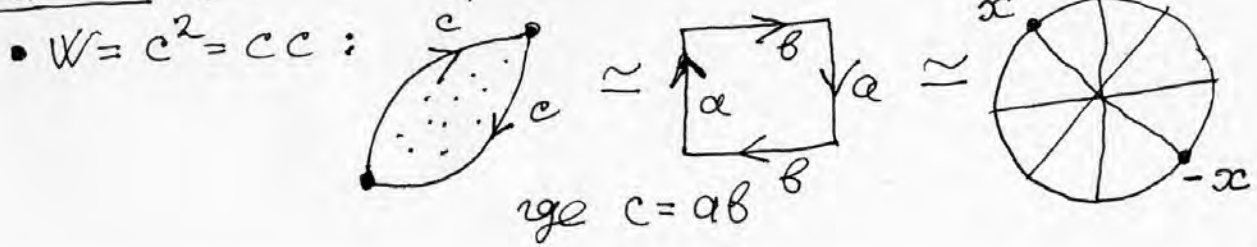 • W = c² = cc :
c
c
≃
a
в
a
в
≃
x
-x
где c = aв